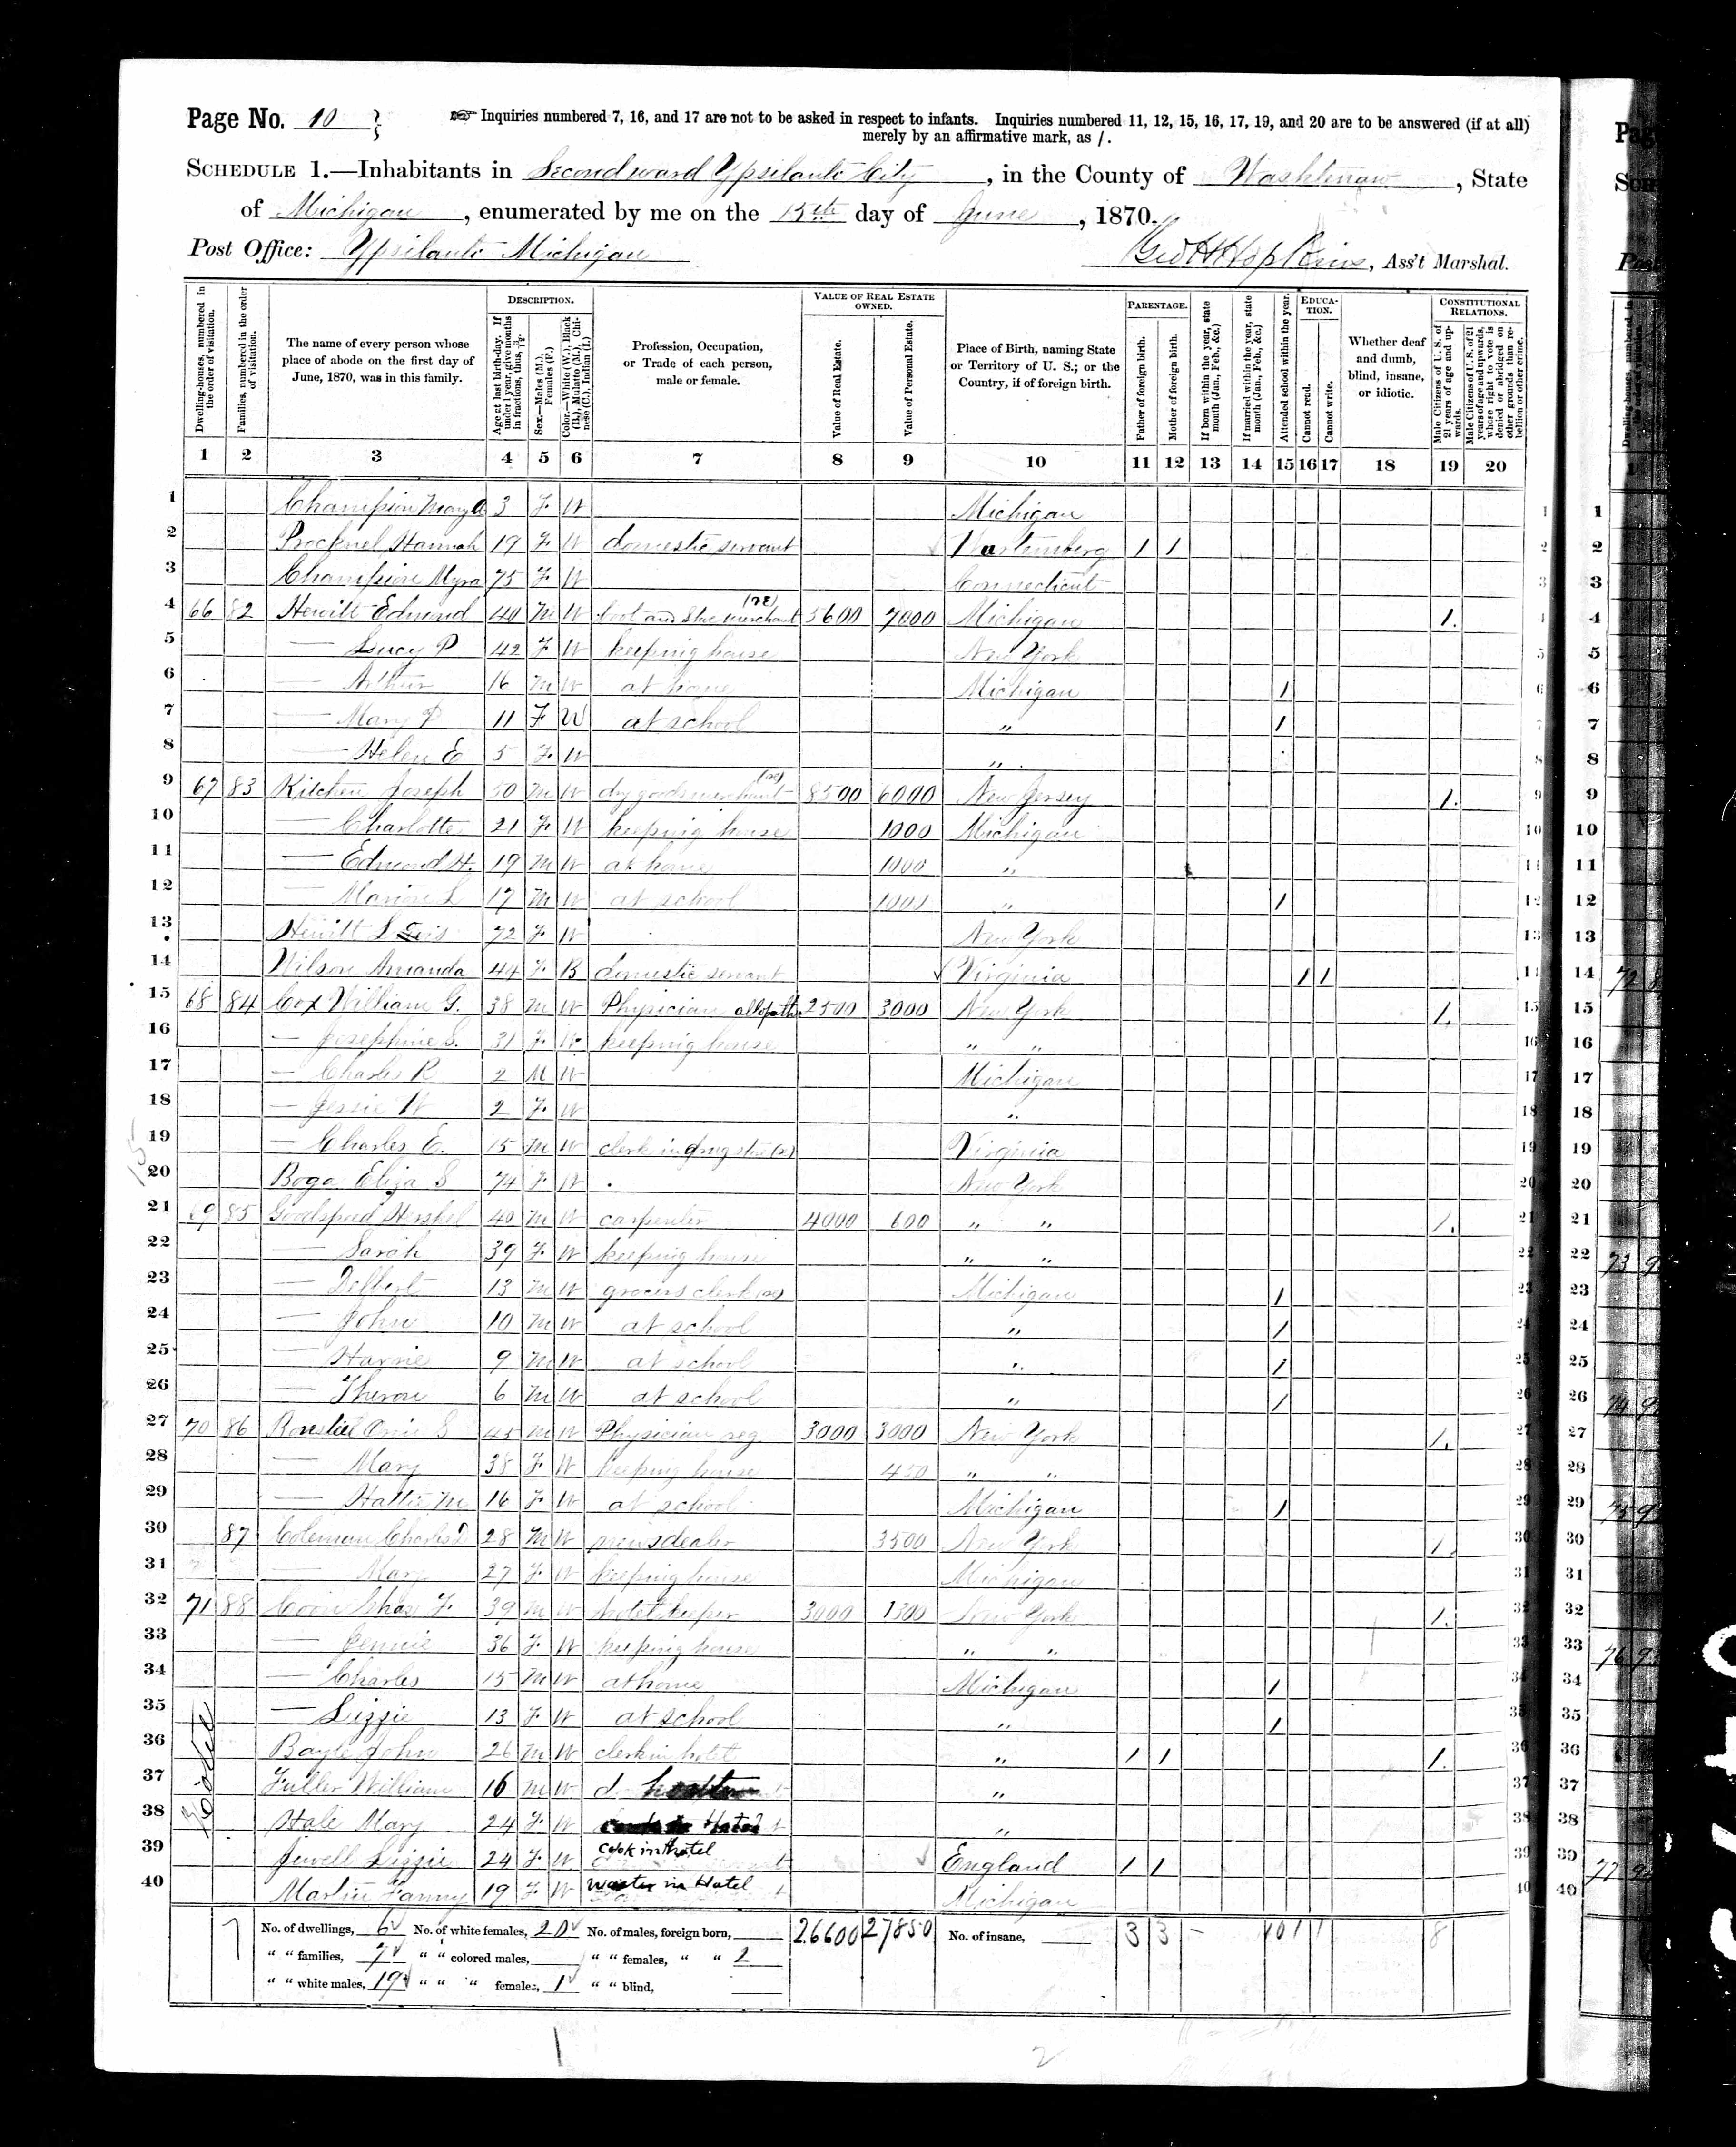 Page No. 10
Inquiries numbered 7, 16, and 17 are not to be asked in respect to infants. Inquiries numbered 11, 12, 15, 16, 17, 19, and 20 are to be answered (if at all)
merely by an affirmative mark, as /.
SCHEDULE 1.—Inhabitants in Second ward Ypsilanti City, in the County of Washtenaw, State
of Michigan, enumerated by me on the 15th day of June, 1870.
Post Office: Ypsilanti Michigan
Geo H Hopkins, Ass't Marshal.
Dwelling-houses, numbered in the order of visitation.
Families, numbered in the order of visitation.
The name of every person whose place of abode on the first day of June, 1870, was in this family.
DESCRIPTION.
Age at last birth-day. If under 1 year, give months in fractions, thus, 3/12.
Sex.—Males (M.), Females (F.)
Color.—White (W.), Black (B.), Mulatto (M.), Chinese (C.), Indian (I.)
Profession, Occupation, or Trade of each person, male or female.
VALUE OF REAL ESTATE OWNED.
Value of Real Estate.
Value of Personal Estate.
Place of Birth, naming State or Territory of U. S.; or the Country, if of foreign birth.
PARENTAGE.
Father of foreign birth.
Mother of foreign birth.
If born within the year, state month (Jan., Feb., &c.)
If married within the year, state month (Jan., Feb., &c.)
Attended school within the year.
EDUCATION.
Cannot read.
Cannot write.
Whether deaf and dumb, blind, insane, or idiotic.
CONSTITUTIONAL RELATIONS.
Male Citizens of U. S. of 21 years of age and upwards.
Male Citizens of U. S. of 21 years of age and upwards, whose right to vote is denied or abridged on other grounds than rebellion or other crime.
1 2 3 4 5 6 7 8 9 10 11 12 13 14 15 16 17 18 19 20
1 Champion Mary A 3 F W Michigan 1
2 Hannah 19 F W domestic servant 1 1 2
3 Champion Myra 75 F W Connecticut 3
4 66 82 Hewitt Edmund 40 M W boot and shoe merchant 5600 7000 Michigan 1. 4
5 — Lucy P 42 F W keeping house New York 5
6 — Arthur 16 M W at home Michigan 1 6
7 — Mary P 11 F W at school " 1 7
8 — Helen E 5 F W " 8
9 67 83 Kitchen Joseph 50 M W dry goods merchant 8500 6000 New Jersey 1. 9
10 — Charlotte 21 F W keeping house 1000 Michigan 10
11 — Edmond H. 19 M W at home 1000 " 11
12 — Marion L 17 M W at school 1000 " 1 12
13 Hewitt 72 F W New York 13
14 Wilson Amanda 44 F B domestic servant Virginia 1 1 14
15 68 84 Cox William G. 38 M W Physician allopath 2500 3000 New York 1. 15
16 — Josephine S. 31 F W keeping house " " 16
17 — Charles R 2 M W Michigan 17
18 — Jessie W 2 F W " 18
19 — Charles E. 15 M W clerk in drug store Virginia 19
20 Boga Eliza S 74 F W New York 20
21 69 85 Goodspeed Hershel 40 M W carpenter 4000 600 " " 1. 21
22 — Sarah 39 F W keeping house " " 22
23 — Delbert 13 M W grocers clerk Michigan 1 23
24 — John 10 M W at school " 1 24
25 — Harrie 9 M W at school " 1 25
26 — Theron 6 M W at school " 1 26
27 70 86 S 45 M W Physician reg 3000 3000 New York 1. 27
28 — Mary 38 F W keeping house 450 " " 28
29 — Hattie M 16 F W at school Michigan 1 29
30 87 Coleman Charles D 28 M W newsdealer 3500 New York 1. 30
31 — Mary 27 F W keeping house Michigan 31
32 71 88 Coon Chas F. 39 M W hotel keeper 3000 1300 New York 1. 32
33 — Jennie 36 F W keeping house " " 33
34 — Charles 15 M W at home Michigan 1 34
35 — Lizzie 13 F W at school " 1 35
36 Bayle John 26 M W clerk in hotel " 1 1 1. 36
37 Fuller William 16 M W " 37
38 Hale Mary 24 F W " 38
39 Jewell Lizzie 24 F W cook in hotel England 1 1 39
40 Martin Fanny 19 F W Waiter in Hotel Michigan 40
No. of dwellings, 6 No. of white females, 20 No. of males, foreign born, 26600 27850 No. of insane, 3 3 – 10 1 1 8
" " families, 7 " " colored males, " " females, " " 2
" " white males, 19 " " " females, 1 " " blind,